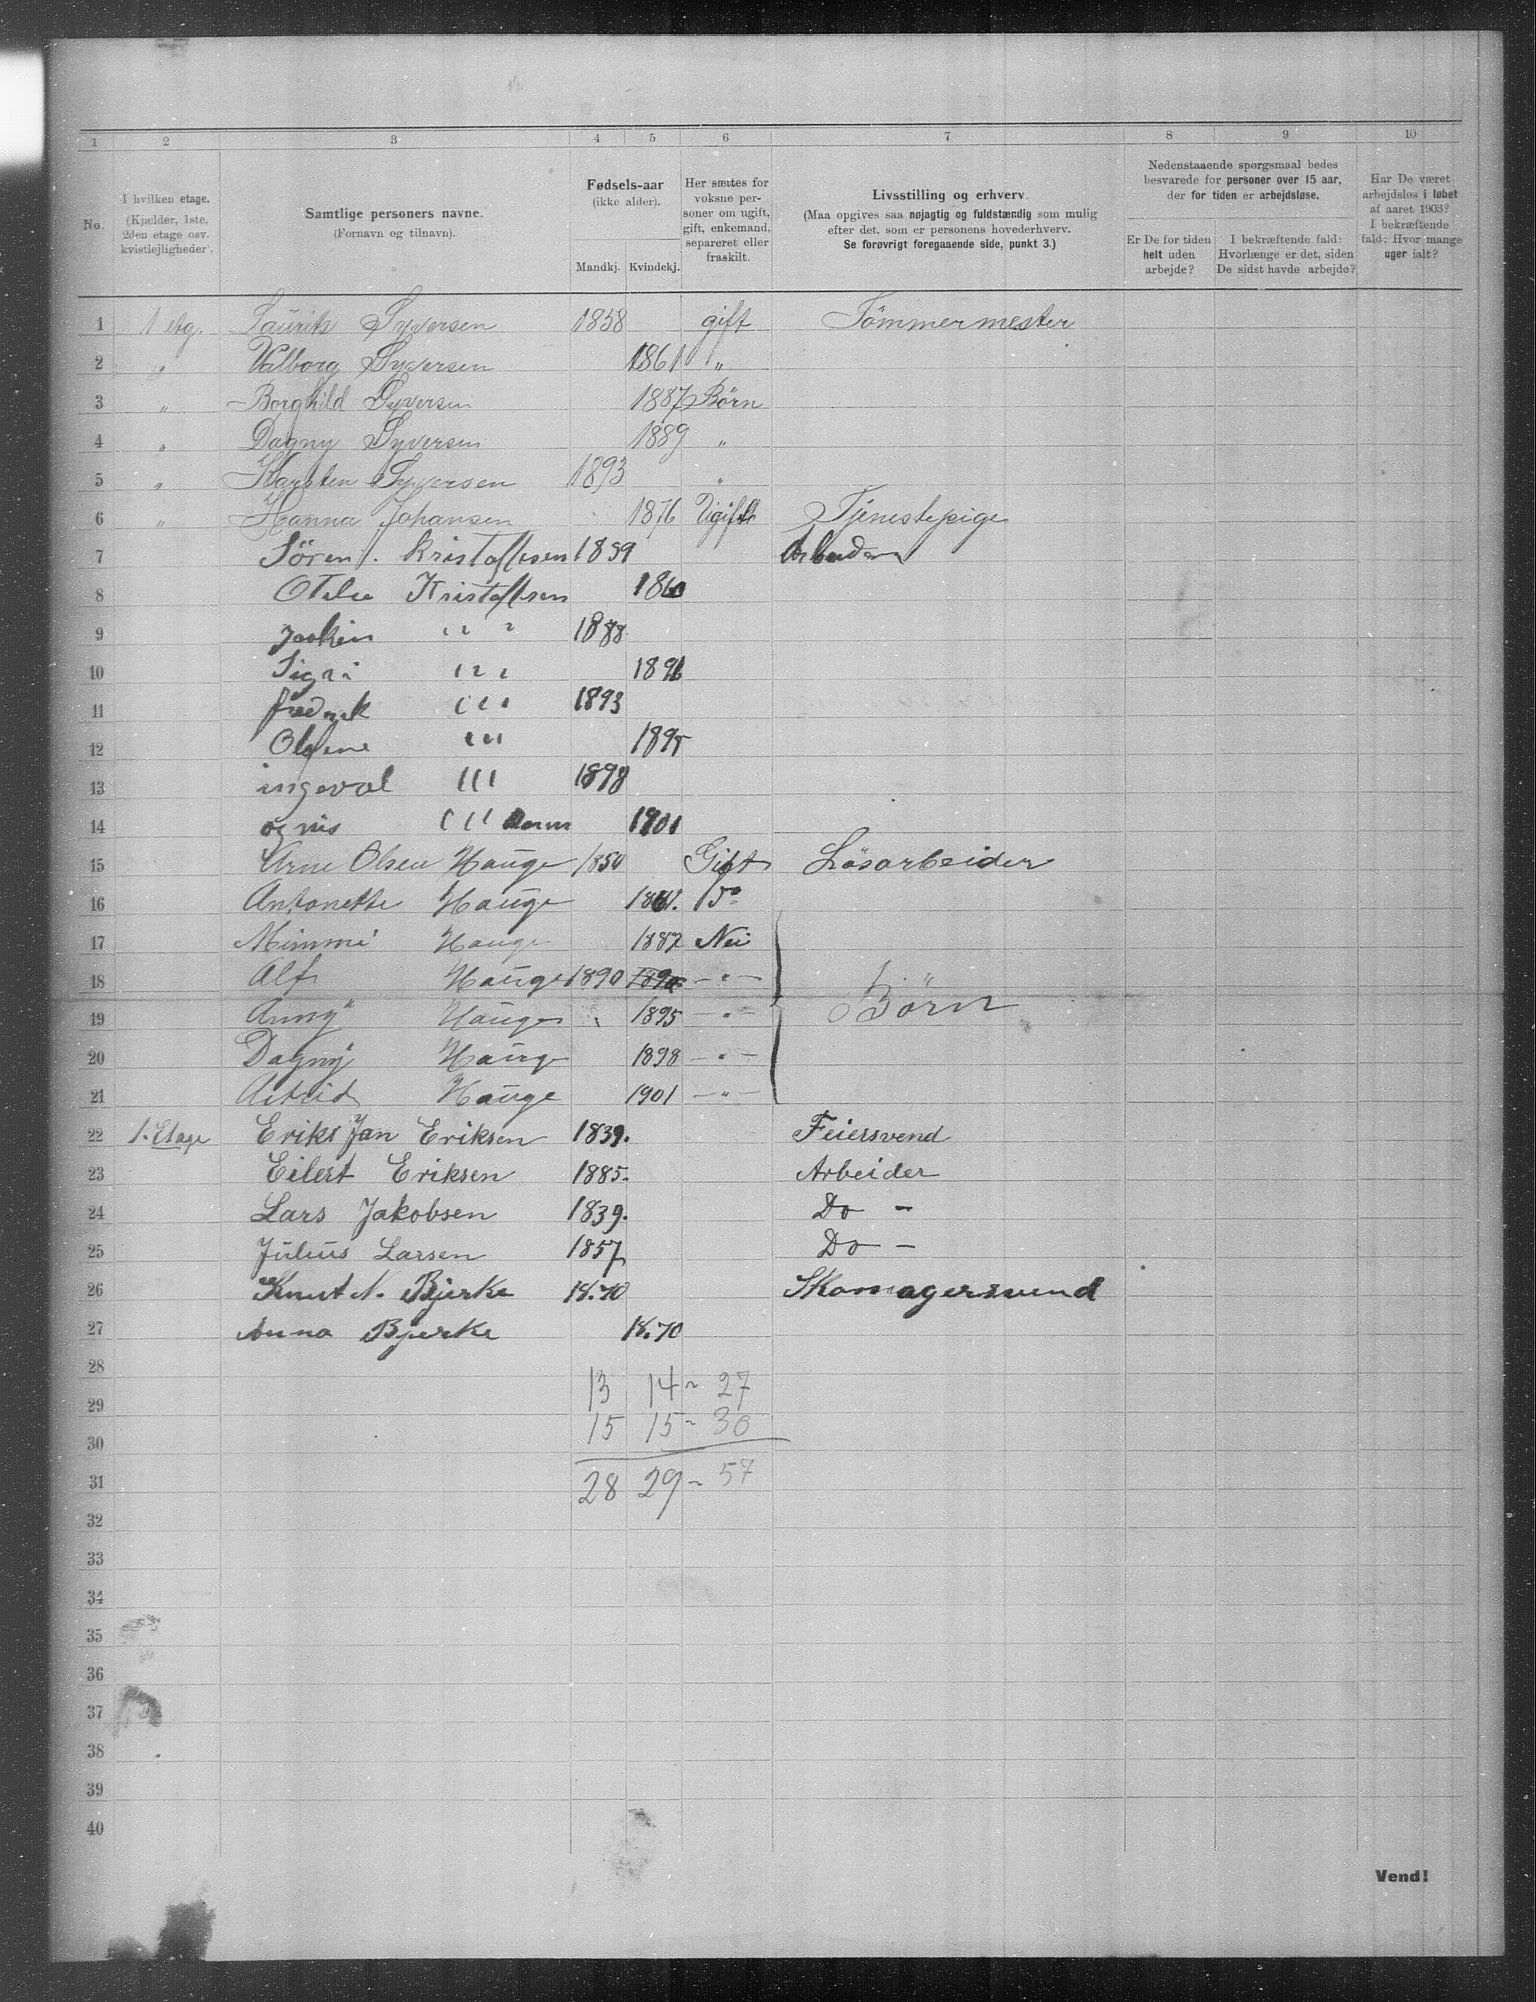 1 2 3 4 5 6 7 8 9 10
No.
I hvilken etage.
(Kjælder, 1ste,
2den etage osv.
kvistlejligheder).
Samtlige personers navne.
(Fornavn og tilnavn).
Fødsels-aar
(ikke alder).
Mandkj. Kvindekj.
Her sættes for
voksne per-
soner om ugift,
gift, enkemand,
separeret eller
fraskilt.
Livsstilling og erhverv.
(Maa opgives saa nøjagtig og fuldstændig som mulig
efter det, som er personens hovederhverv.
Se forøvrigt foregaaende side, punkt 3.)
Nedenstaaende spørgsmaal bedes
besvarede for personer over 15 aar,
der for tiden er arbejdsløse.
Er De for tiden
helt uden
arbejde?
I bekræftende fald:
Hvorlænge er det, siden
De sidst havde arbejde?
Har De været
arbejdsløs i løbet
af aaret 1903?
I bekræftende
fald: Hvor mange
uger ialt?
1 1 etg. Laurits Syversen 1858 gift Tömmermester
2 " Valborg Syversen 1861 "
3 " Borghild Syversen 1887 Børn
4 " Dagny Syversen 1889 "
5 " Karsten Syversen 1893 "
6 " Hanna Johansen 1876 Ugift Tjenestepige
7 Sören Kristoffersen 1859 Arbeider
8 Otelie Kristoffersen 1860
9 Joakim " " " 1888
10 Sigri " " " 1891
11 fredrek " " " 1893
12 Olefine " " " 1895
13 ingeval " " " 1898
14 " " " 1901
15 Arne Olsen Hauge 1850 Gift Løsarbeider
16 Antonette Hauge Do
17 Mimmi Hauge 1887 Nei
18 Alf Hauge 1890 1890 — " —
19 Anny Hauge 1895 — " — Børn
20 Dagny Hauge 1898 — " —
21 Astrid Hauge 1901 — " —
22 1. Etage Eriks Jan Eriksen 1839. Feiersvend
23 Eilert Eriksen 1885. Arbeider
24 Lars Jakobsen 1839. Do —
25 Julius Larsen 1857 Do —
26 Knut N. Bjerke 18.70 Skomagersvend
27 Anna Bjerke 18.70
28 13 14 - 27
29 15 15 - 30
30
31 28 29 - 57
32
33
34
35
36
37
38
39
40
Vend!